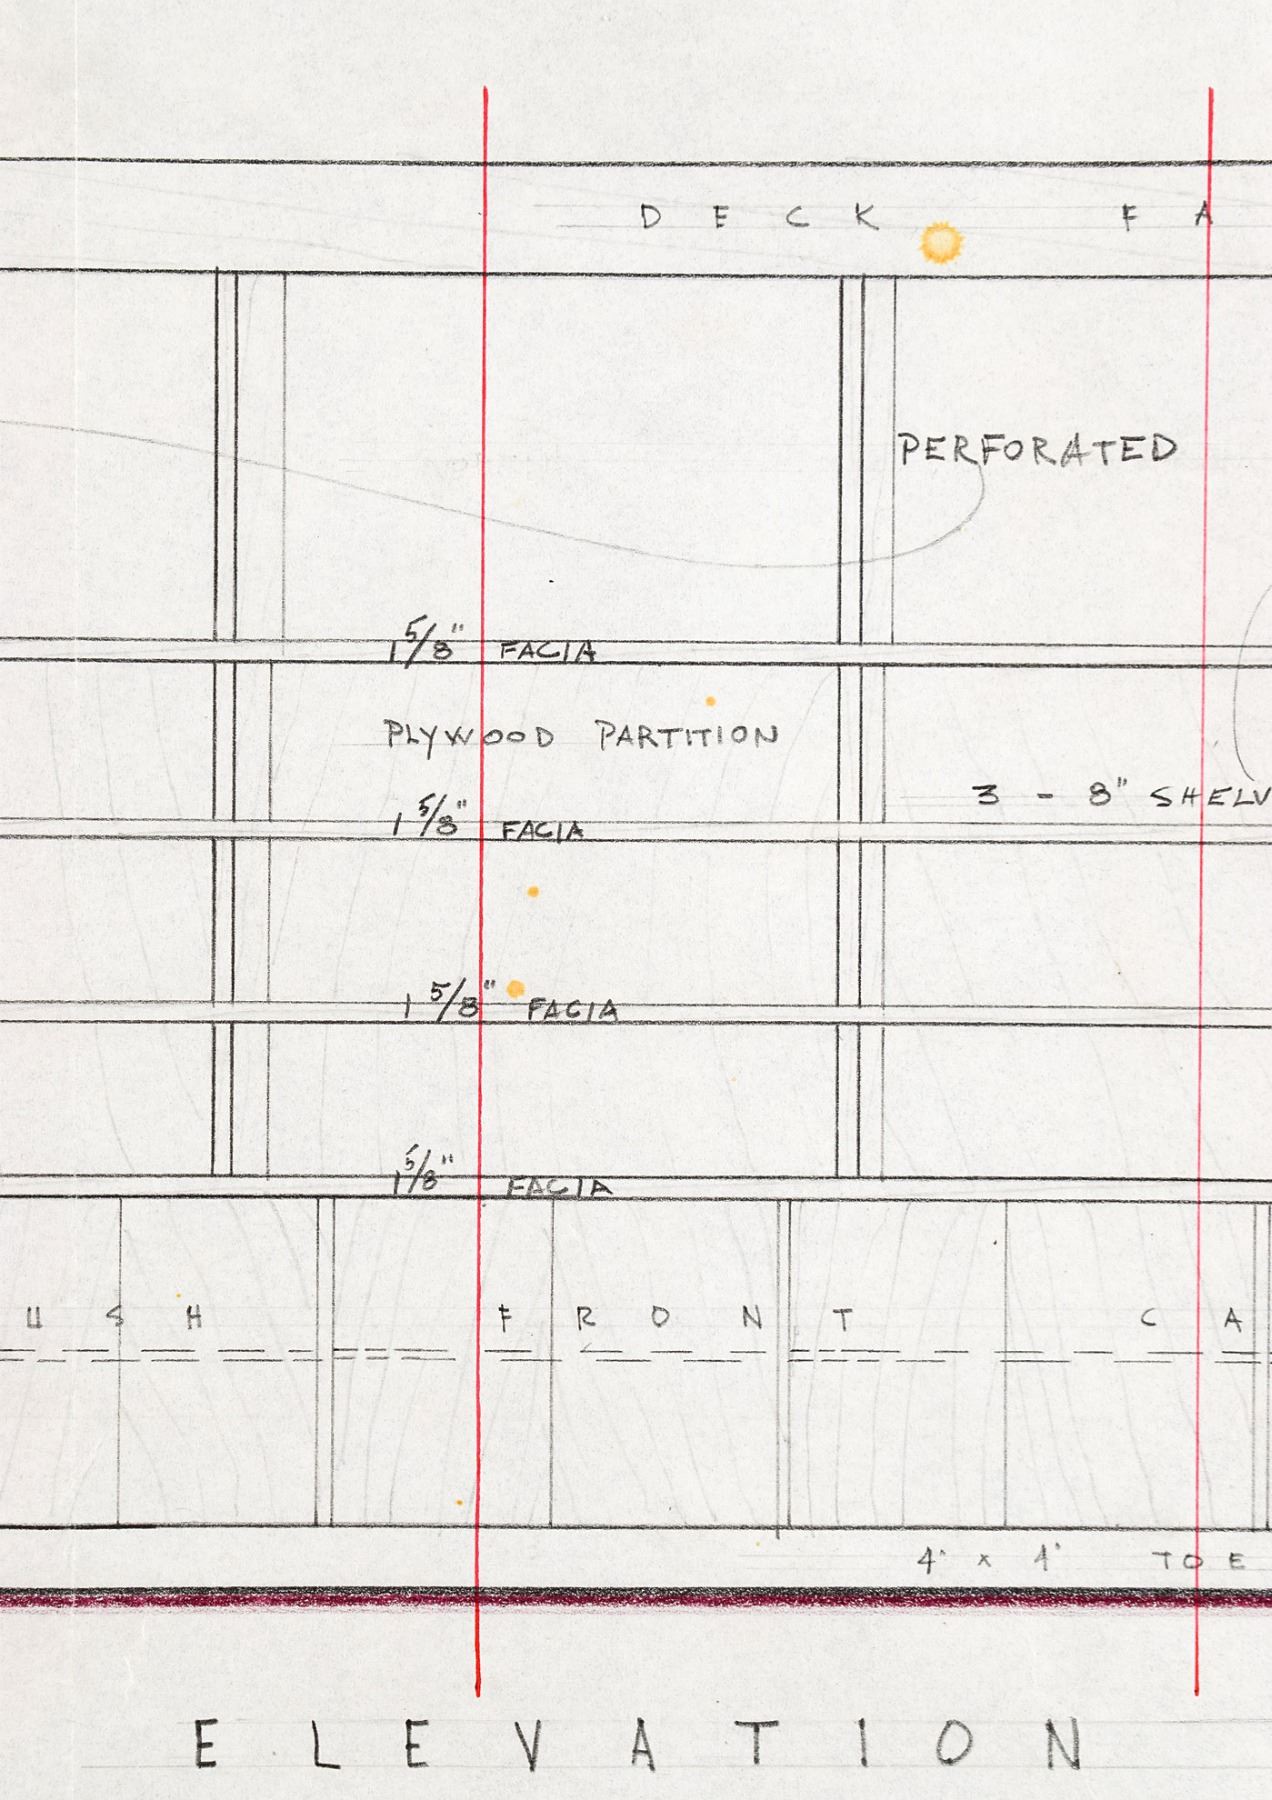 DECK FA
PERFORATED
1 5/8" FACIA
PLYWOOD PARTITION
3 - 8" SHELV
1 5/8" FACIA
1 5/8" FACIA
1 5/8" FACIA
USH FRONT CA
4" x 4" TOE
ELEVATION